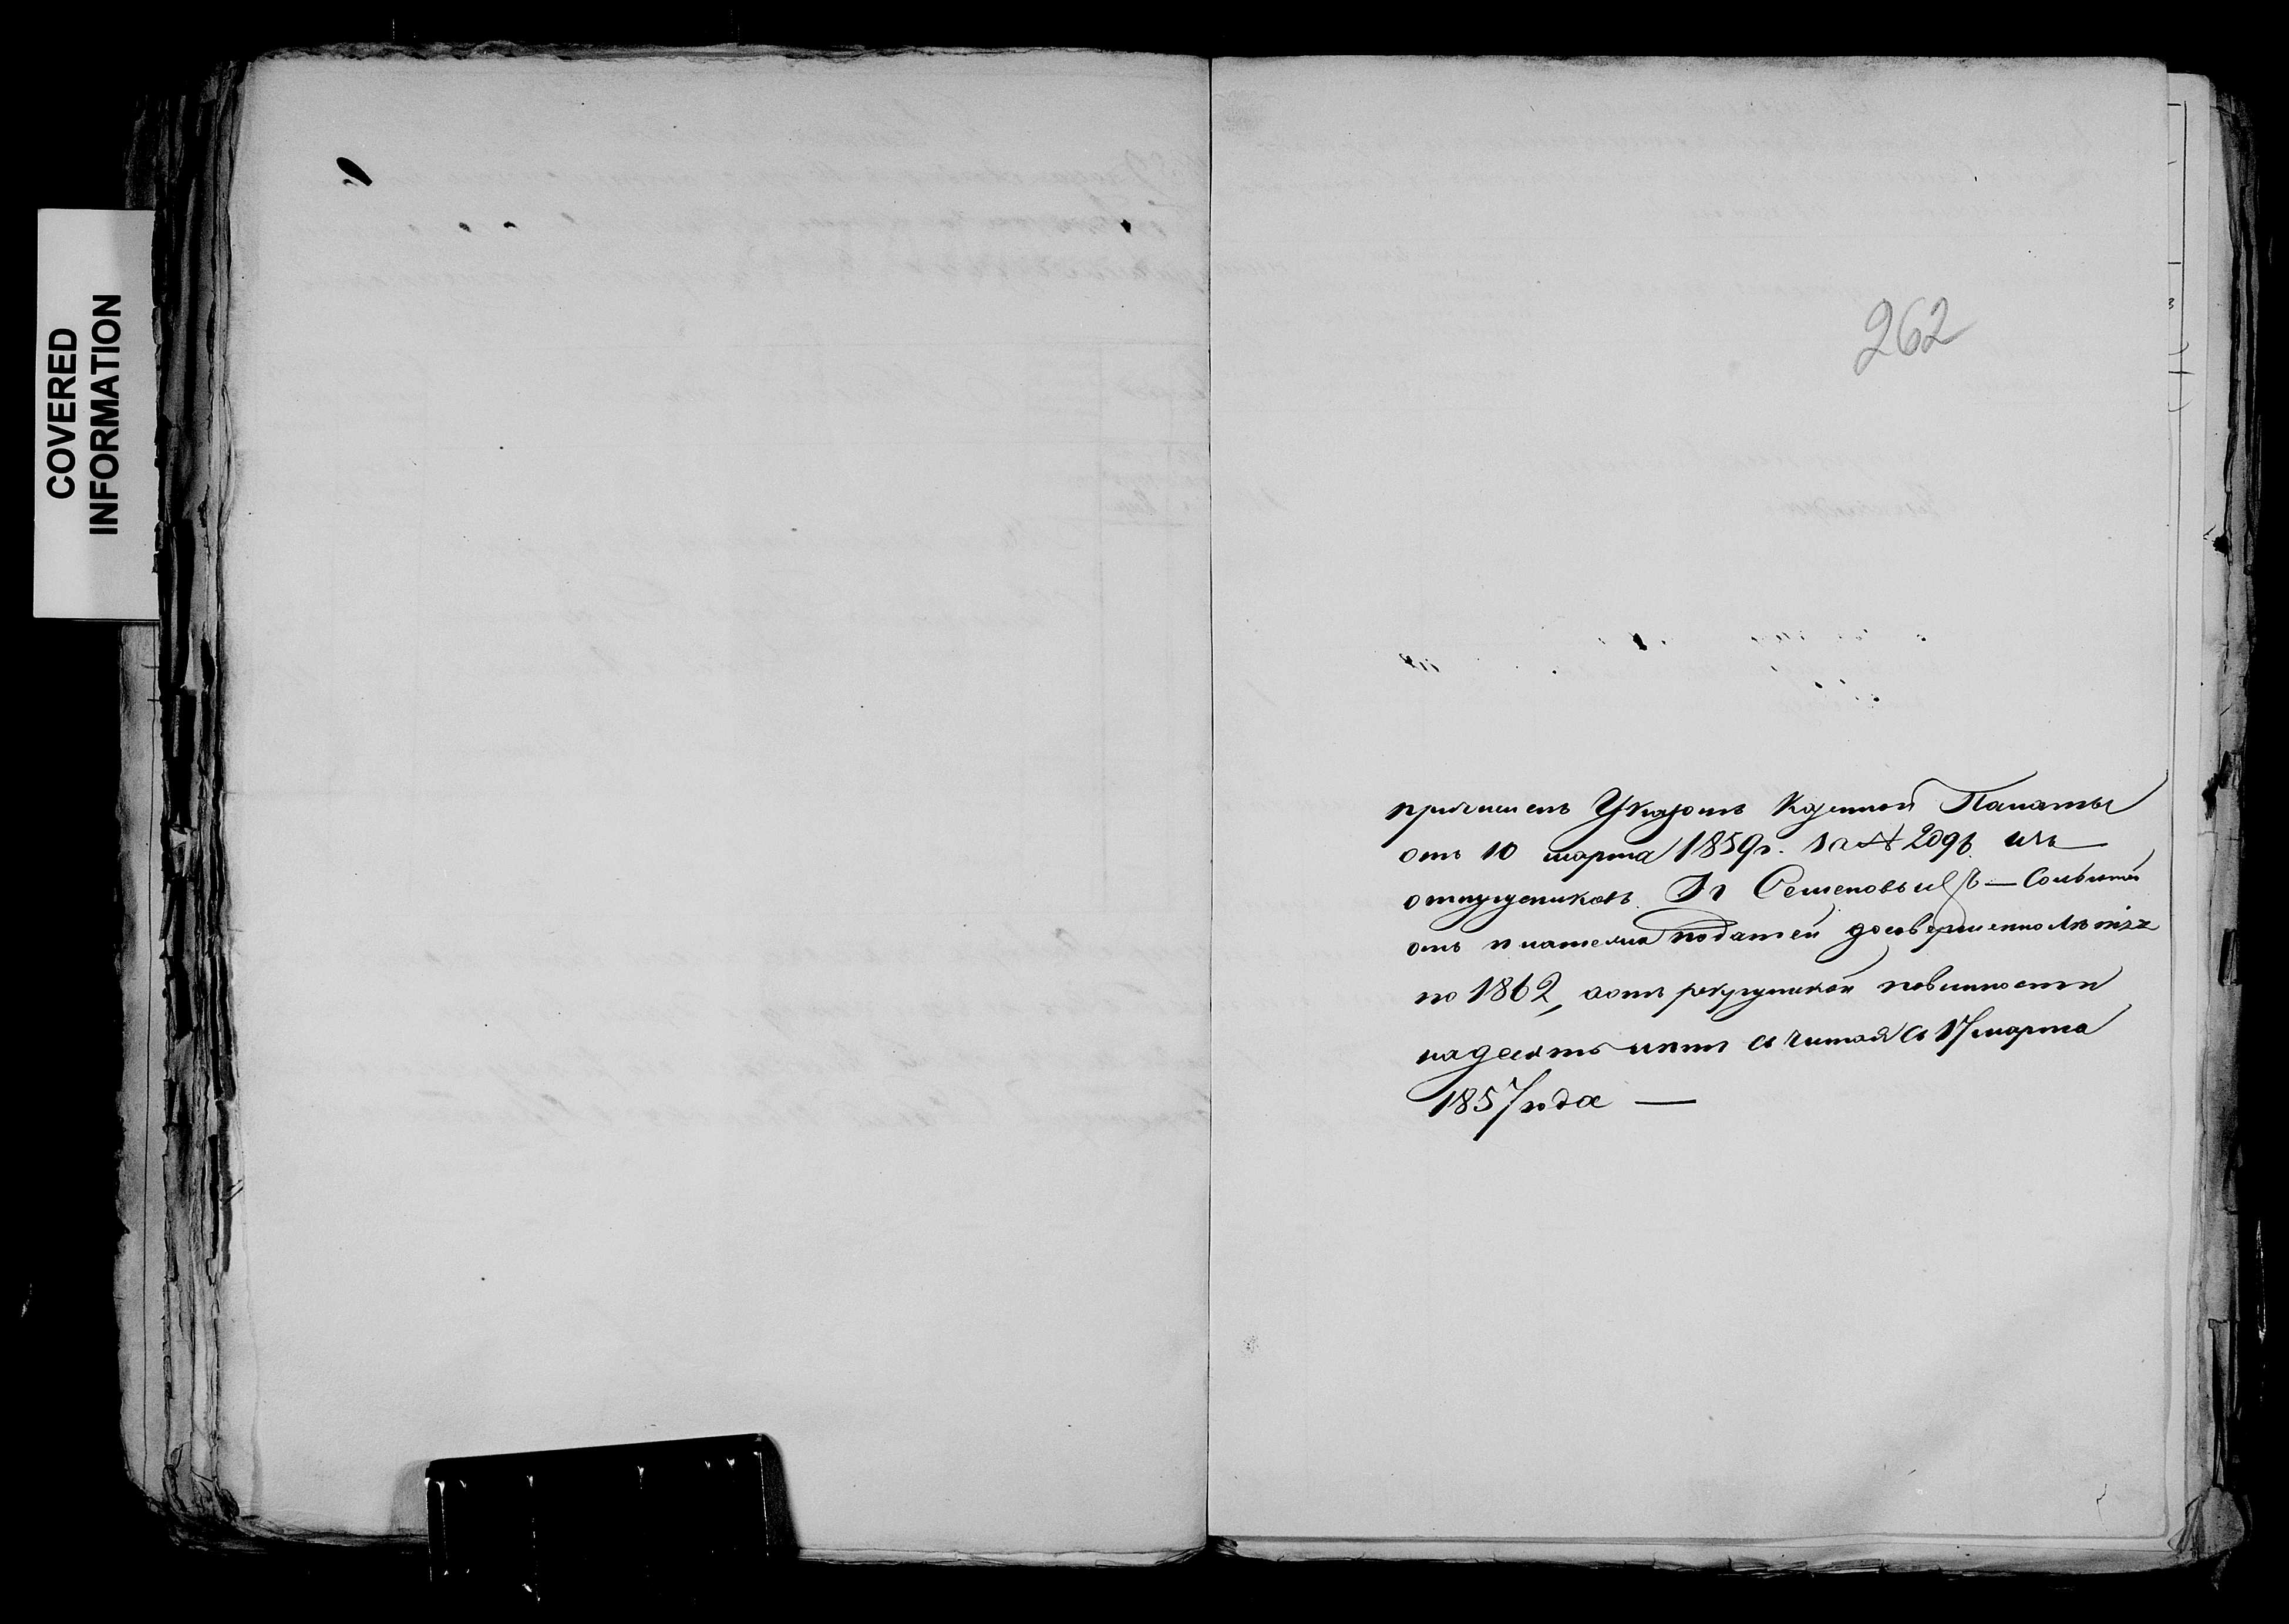 COVERED
INFORMATION
262
причисленъ Указомъ Казенной Палаты
отъ 10 марта 1859г. за № 2096 изъ
отпущениковъ Гг Семеновыхъ — Сольготой
отъ платежа податей до совершеннолѣтія
по 1862, а отъ рекрутской повинности
на десять лѣтъ считая съ 17 марта
1857 года —